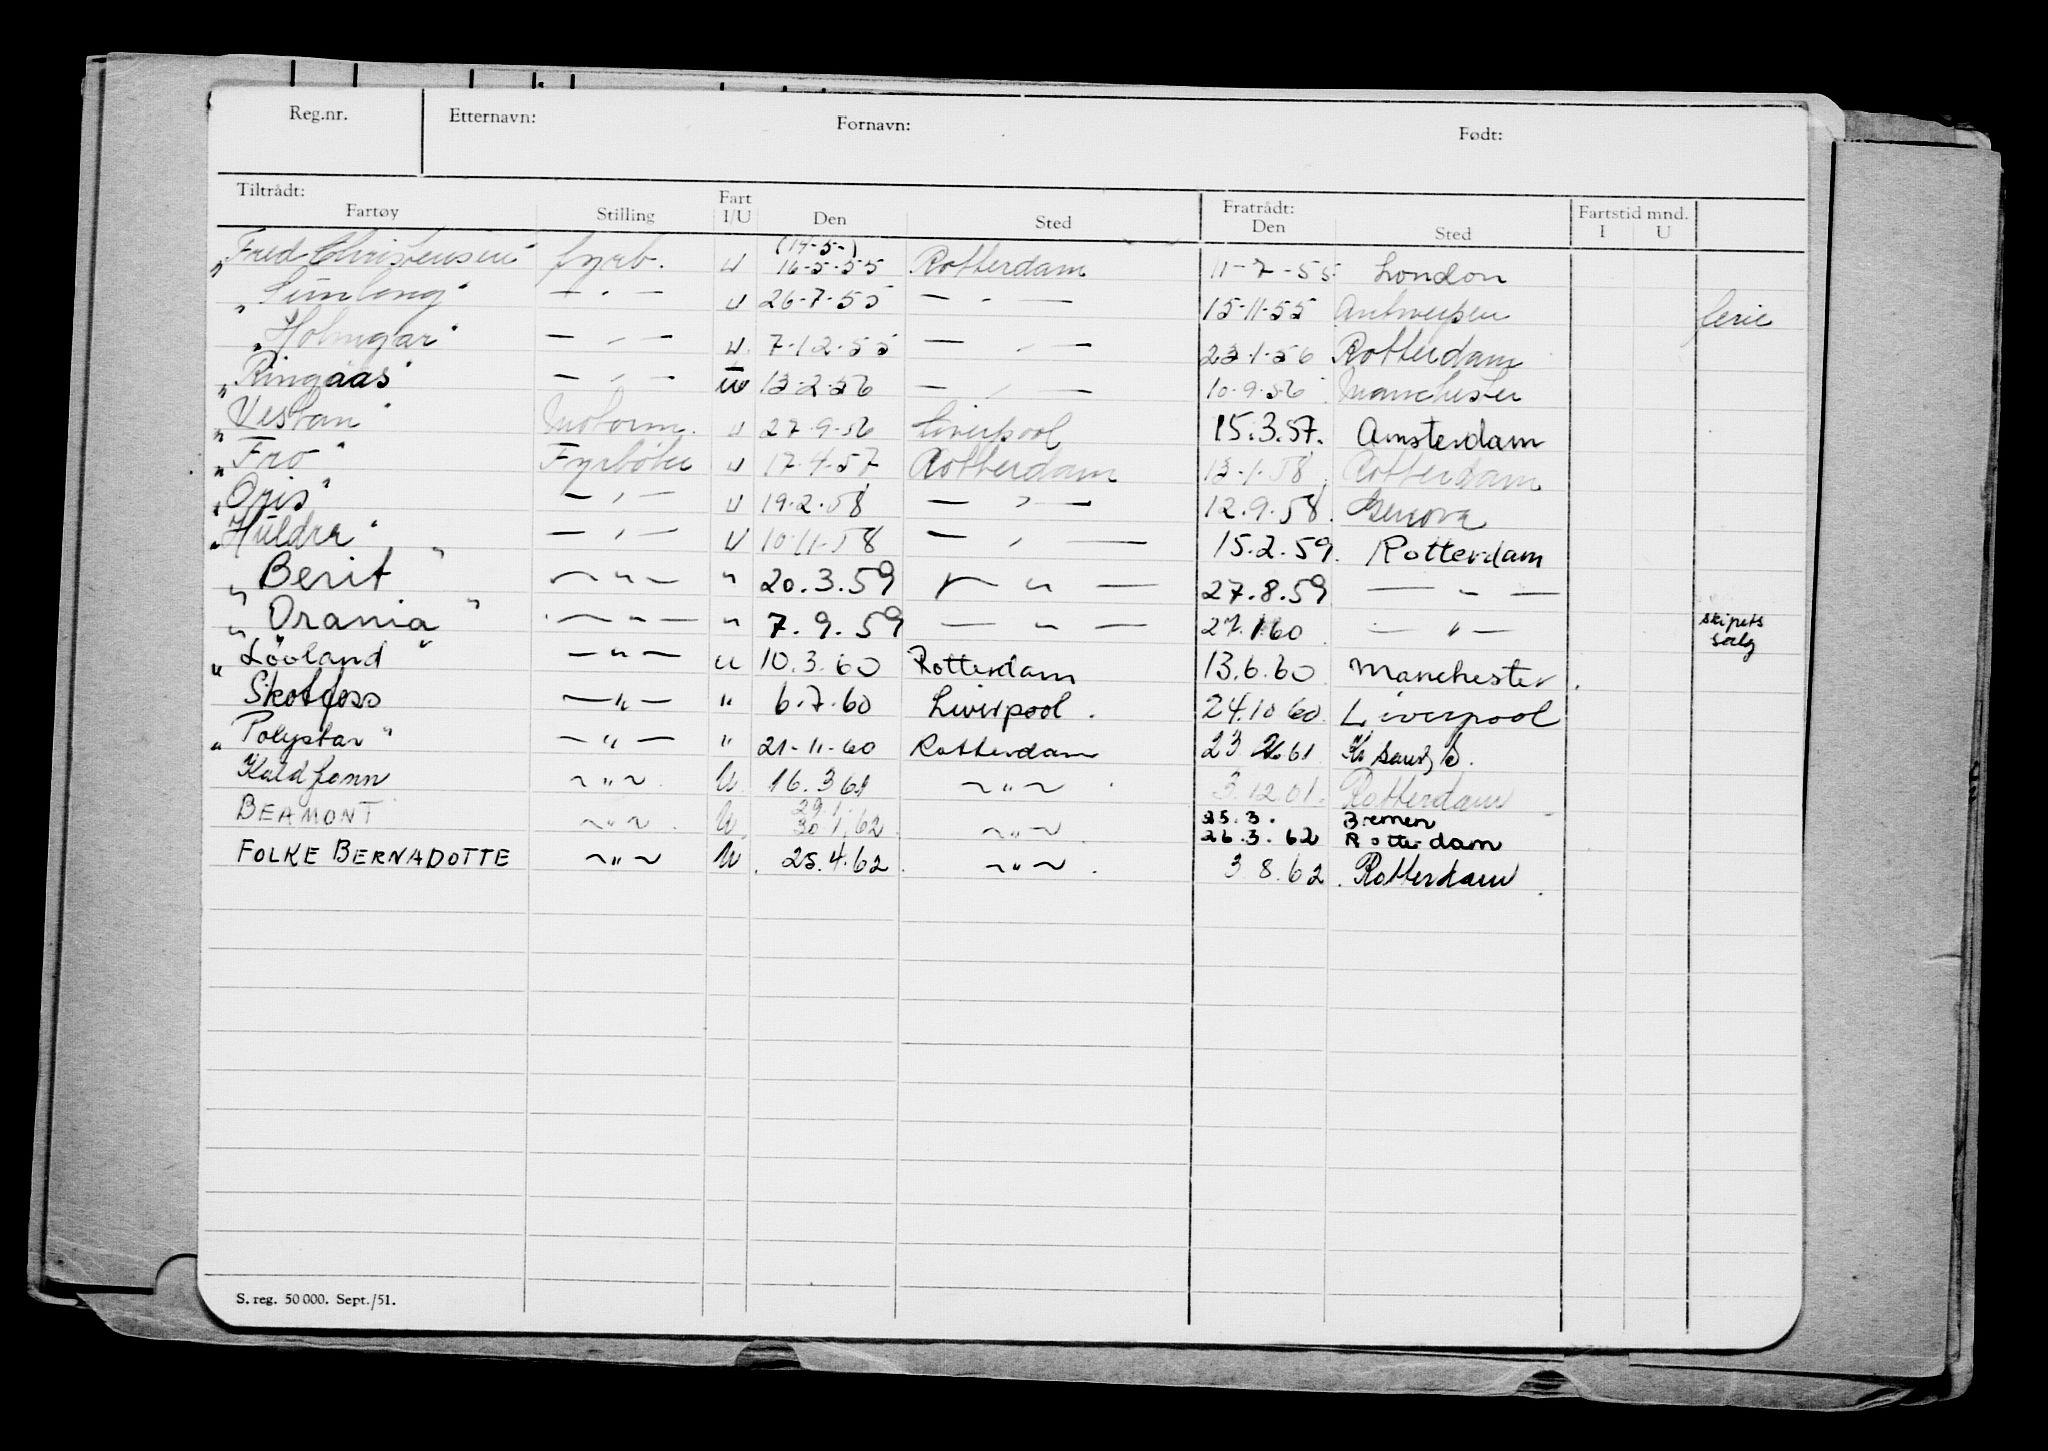 Reg.nr. Etternavn: Fornavn: Født:
Tiltrådt: Fratrådt: Fartstid mnd.
Fartøy Stilling Fart I/U Den Sted Den Sted I U
(14-5-)
"Fred Christensen" fyrb. u 16-5-55 Rotterdam 11-7-55 London
" " — " — u 26-7-55 — " — 15-11-55 Antwerpen ferie
"Holmgar" — " — u. 7-12-55 — " — 23-1-56 Rotterdam
"Ringaas" — " — 13-2-56 — " — 10-9-56 Manchester
"Vestan" Motorm. u 27-9-56 Liverpool 15.3.57. Amsterdam
"Fro" Fyrbøter u 17-4-57 Rotterdam 13-1-58. Rotterdam
" " — " — u 19-2-58 — " — 12.9.58. Genova
"Huldra" — " — u 10-11-58 — " — 15.2.59. Rotterdam
"Berit" — " — " 20.3.59 — " — 27.8.59 — " —
"Orania" — " — " 7.9.59 — " — 27.1.60 — " — skipets salg
"Lööland" — " — u 10.3.60 Rotterdam 13.6.60 Manchester.
Skotfoss — " — " 6.7.60 Liverpool. 24.10 60. Liverpool
"Polystar" — " — " 21-11-60 Rotterdam 23 2 61 Kr sand S.
Kaldfonn ~ " ~ U 16.3 61 ~ " ~ 3.12 61. Rotterdam
29.1. 25.3. Bremen
BEAMONT ~ " ~ U. 30 1.62 ~ " ~ 26.3.62 Rotterdam
FOLKE BERNADOTTE ~ " ~ U. 25.4.62. ~ " ~ 3 8.62. Rotterdam.
S. reg. 50 000. Sept./51.